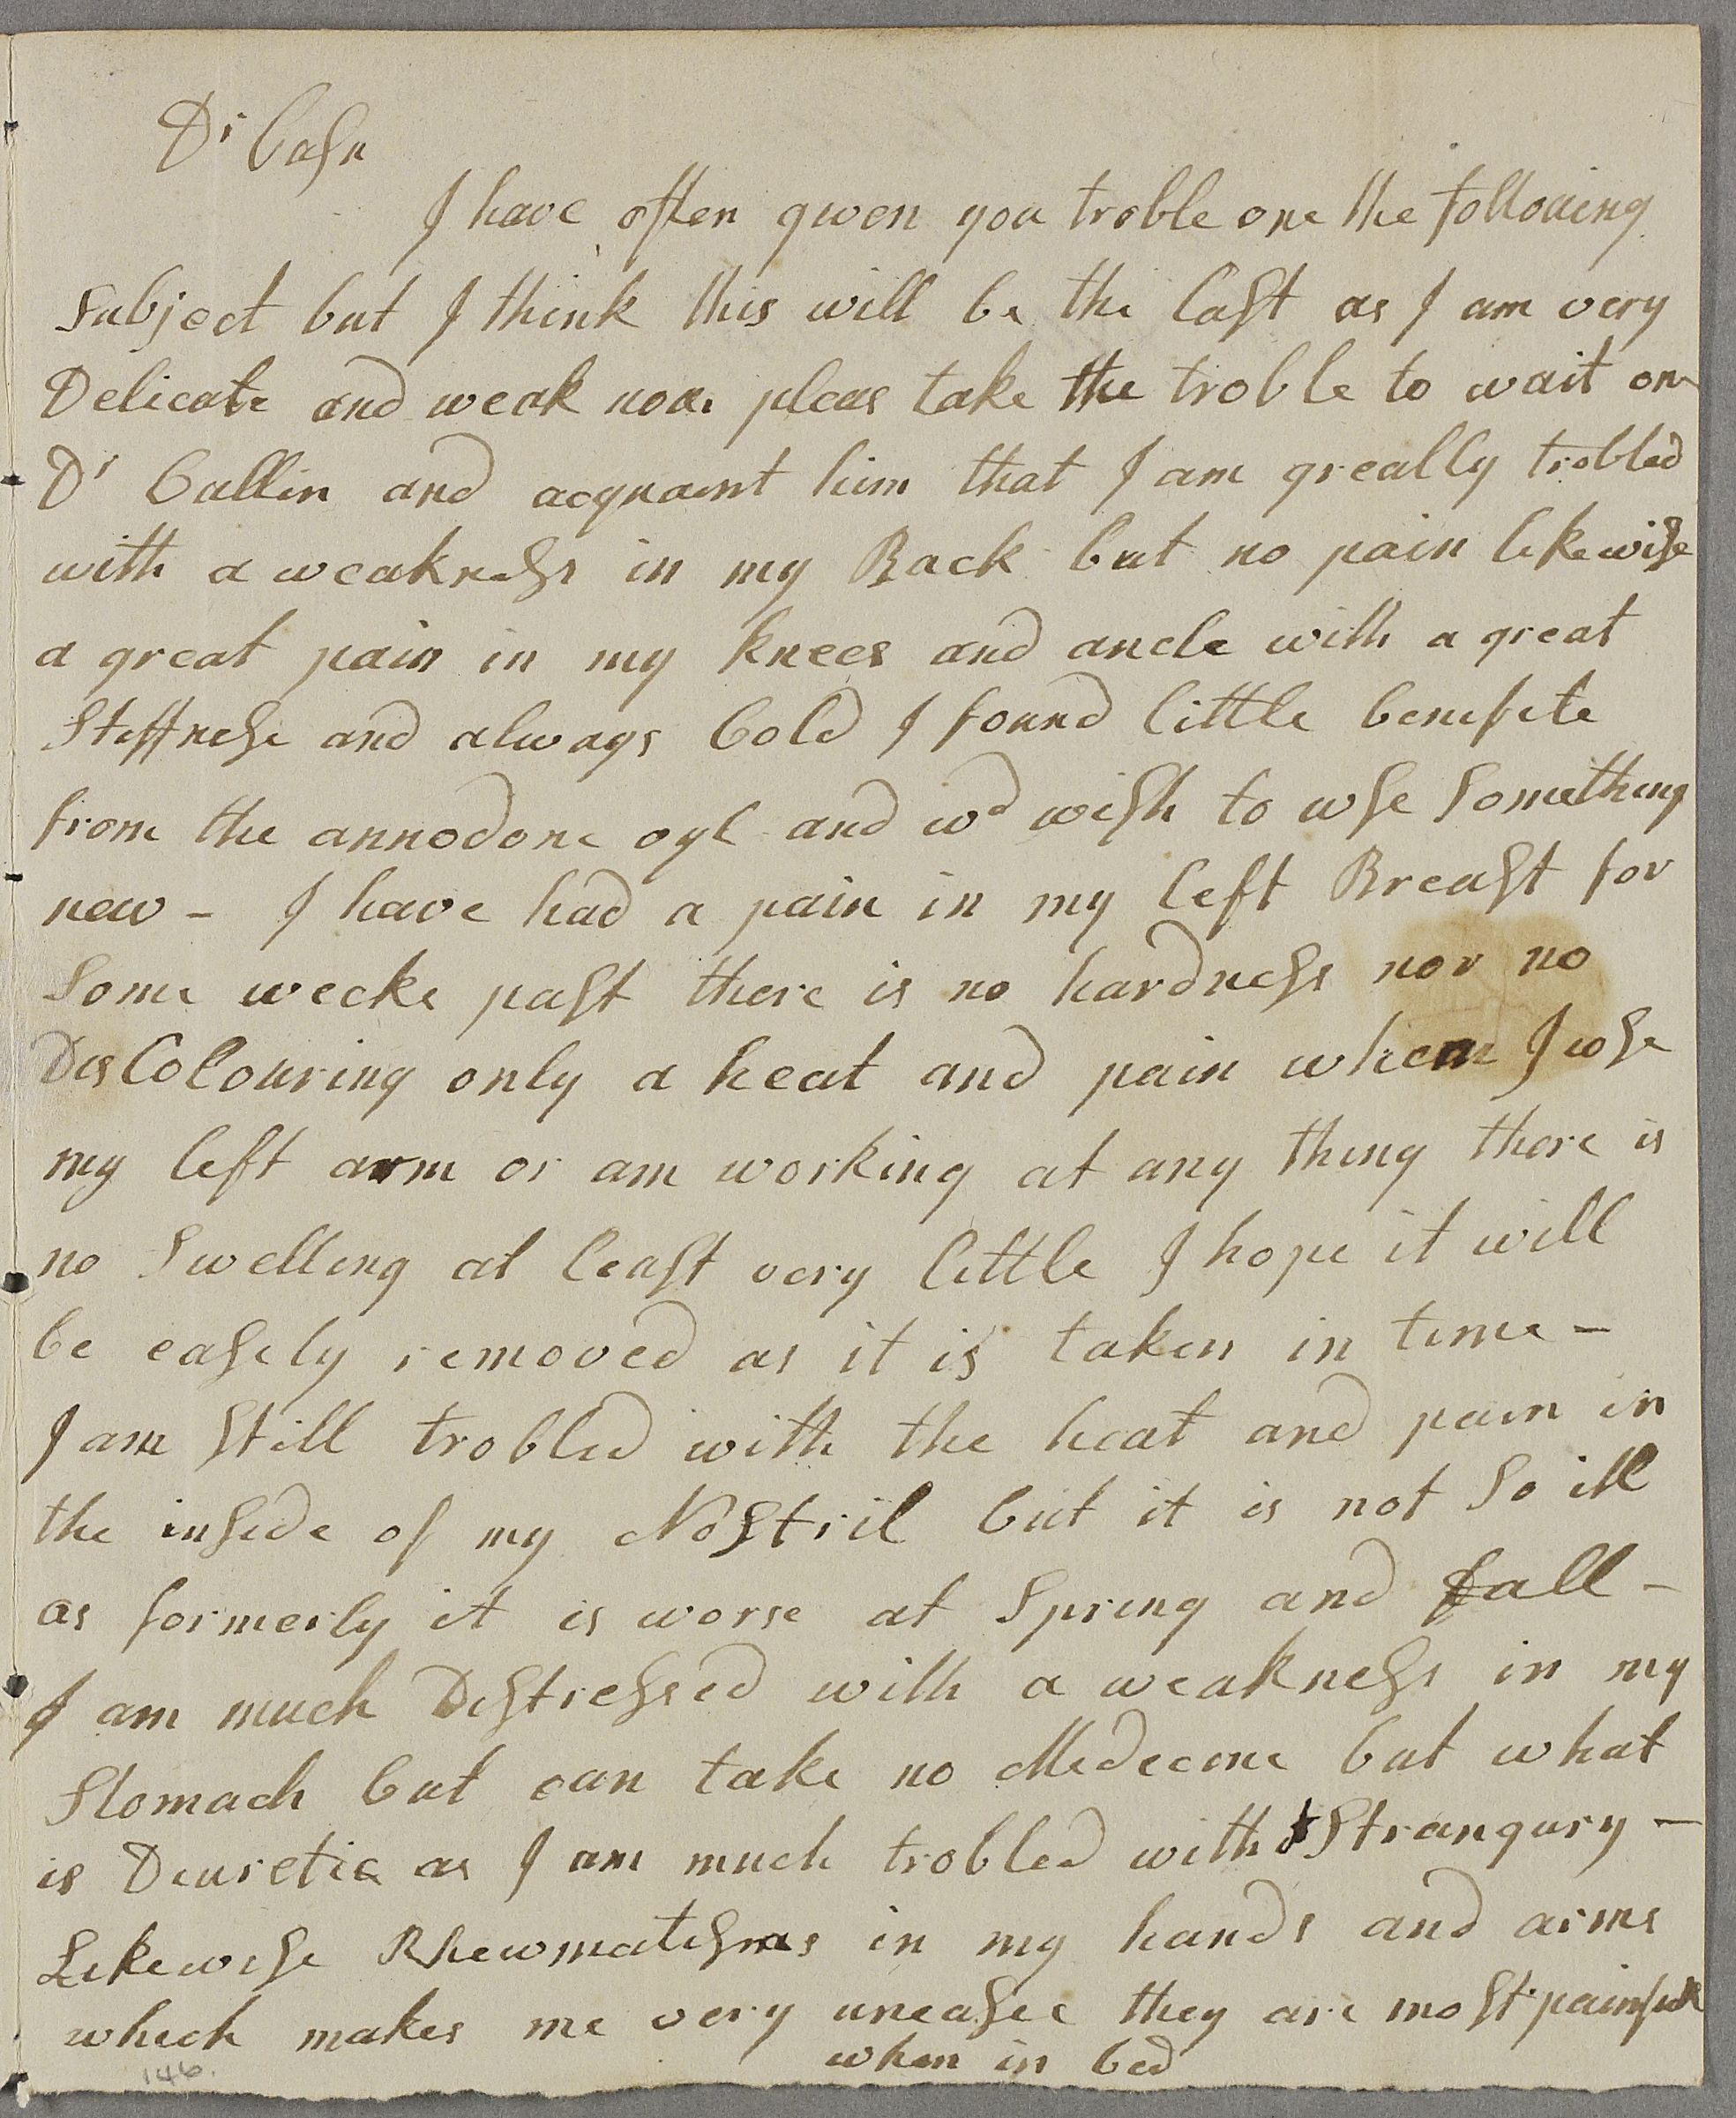 Dr Casn
I have often given you troble one the following
subject but I think this will be the last as I am very
Delicate and weak now pleas take the troble to wait on
Dr Cullin and acquaint him that I am greatly trobled
with a weakness in my Back but no pain likewise
a great pain in my knees and ancle with a great
Stiffness and always Cold I found little benefite
from the annodone oyl and wd wish to use something
new - I have had a pain in my left Breast for
Some weeks past there is no hardness nor no
DisColouring only a heat and pain when I use
my left arm or am working at any thing there is
no Swelling at least very little I hope it will
be easely removed as it is taken in time -
I am still trobled with the heat and pain in
the inside of my Nostril but it is not so ill
as formerly it is worse at Spring and fall -
I am much Distressed with a weakness in my
Stomach but can take no Medecine but what
is Diuretic as I am much trobled with Strangury -
Likewise Rhewmatisms in my hands and arms
which makes me very uneasee they are most painfull
when in bed
146.